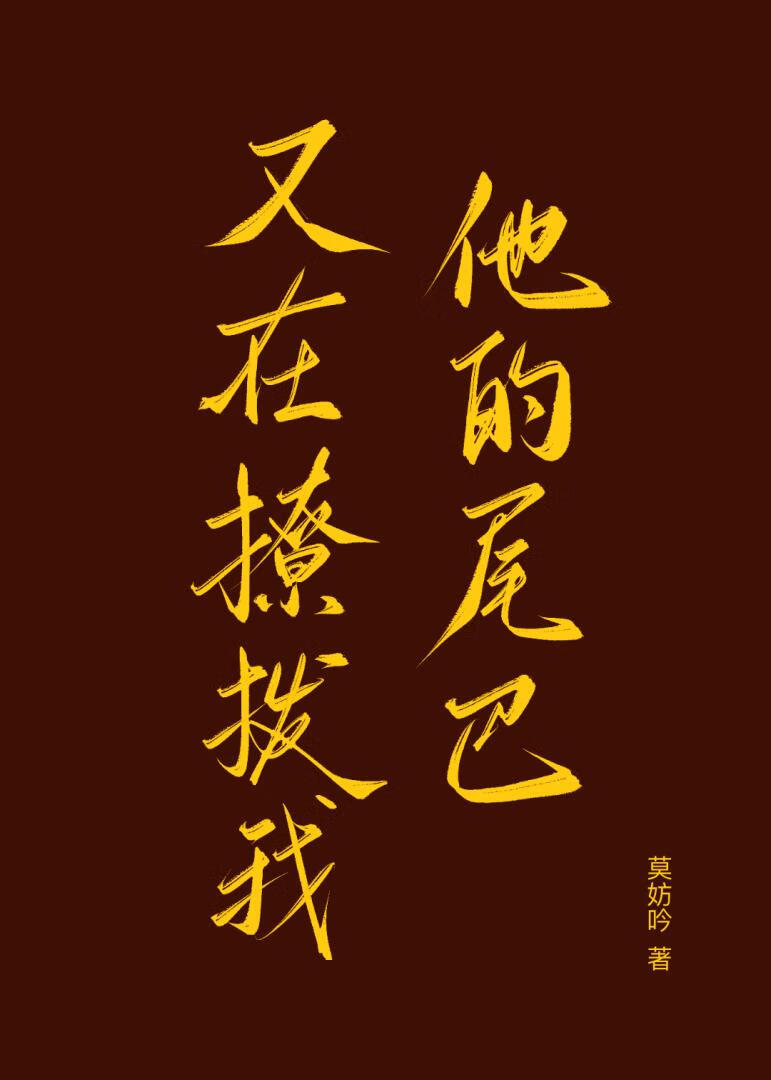 他的尾巴
又在撩拨我
莫妨吟 著